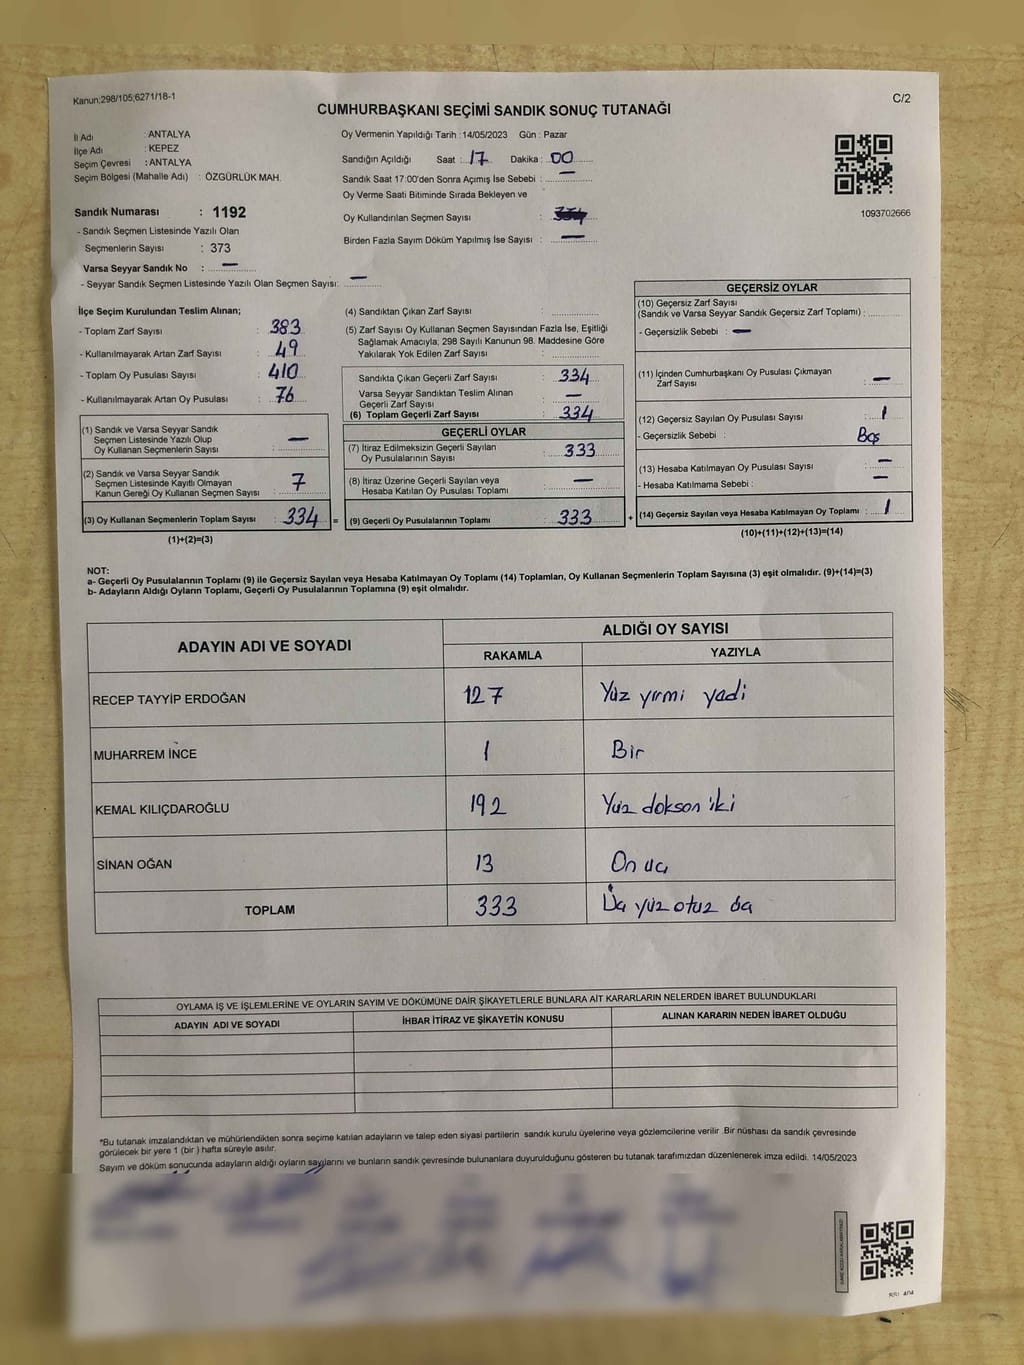 Kanun;298/105;6271/18-1
C/2
CUMHURBAŞKANI SEÇİMİ SANDIK SONUÇ TUTANAĞI
İl Adı : ANTALYA
İlçe Adı : KEPEZ
Seçim Çevresi : ANTALYA
Seçim Bölgesi (Mahalle Adı) : ÖZGÜRLÜK MAH.
Sandık Numarası : 1192
- Sandık Seçmen Listesinde Yazılı Olan
Seçmenlerin Sayısı : 373
Varsa Seyyar Sandık No : —
- Seyyar Sandık Seçmen Listesinde Yazılı Olan Seçmen Sayısı: —
Oy Vermenin Yapıldığı Tarih : 14/05/2023 Gün : Pazar
Sandığın Açıldığı Saat : 17 Dakika : 00
Sandık Saat 17:00'den Sonra Açımış İse Sebebi : —
Oy Verme Saati Bitiminde Sırada Bekleyen ve
Oy Kullandırılan Seçmen Sayısı :
Birden Fazla Sayım Döküm Yapılmış İse Sayısı : —
1093702666
İlçe Seçim Kurulundan Teslim Alınan;
- Toplam Zarf Sayısı : 383
- Kullanılmayarak Artan Zarf Sayısı : 49
- Toplam Oy Pusulası Sayısı : 410
- Kullanılmayarak Artan Oy Pusulası : 76
(1) Sandık ve Varsa Seyyar Sandık
Seçmen Listesinde Yazılı Olup
Oy Kullanan Seçmenlerin Sayısı : —
(2) Sandık ve Varsa Seyyar Sandık
Seçmen Listesinde Kayıtlı Olmayan
Kanun Gereği Oy Kullanan Seçmen Sayısı : 7
(3) Oy Kullanan Seçmenlerin Toplam Sayısı : 334 =
(1)+(2)=(3)
(4) Sandıktan Çıkan Zarf Sayısı :
(5) Zarf Sayısı Oy Kullanan Seçmen Sayısından Fazla İse, Eşitliği
Sağlamak Amacıyla; 298 Sayılı Kanunun 98. Maddesine Göre
Yakılarak Yok Edilen Zarf Sayısı :
Sandıkta Çıkan Geçerli Zarf Sayısı : 334
Varsa Seyyar Sandıktan Teslim Alınan
Geçerli Zarf Sayısı : —
(6) Toplam Geçerli Zarf Sayısı : 334
GEÇERLİ OYLAR
(7) İtiraz Edilmeksizin Geçerli Sayılan
Oy Pusulalarının Sayısı : 333
(8) İtiraz Üzerine Geçerli Sayılan veya
Hesaba Katılan Oy Pusulası Toplamı : —
(9) Geçerli Oy Pusulalarının Toplamı : 333 +
GEÇERSİZ OYLAR
(10) Geçersiz Zarf Sayısı
(Sandık ve Varsa Seyyar Sandık Geçersiz Zarf Toplamı) :
- Geçersizlik Sebebi : —
(11) İçinden Cumhurbaşkanı Oy Pusulası Çıkmayan
Zarf Sayısı : —
(12) Geçersiz Sayılan Oy Pusulası Sayısı : 1
- Geçersizlik Sebebi : Boş
(13) Hesaba Katılmayan Oy Pusulası Sayısı : —
- Hesaba Katılmama Sebebi : —
(14) Geçersiz Sayılan veya Hesaba Katılmayan Oy Toplamı : 1
(10)+(11)+(12)+(13)=(14)
NOT:
a- Geçerli Oy Pusulalarının Toplamı (9) ile Geçersiz Sayılan veya Hesaba Katılmayan Oy Toplamı (14) Toplamları, Oy Kullanan Seçmenlerin Toplam Sayısına (3) eşit olmalıdır. (9)+(14)=(3)
b- Adayların Aldığı Oyların Toplamı, Geçerli Oy Pusulalarının Toplamına (9) eşit olmalıdır.
ADAYIN ADI VE SOYADI ALDIĞI OY SAYISI
RAKAMLA YAZIYLA
RECEP TAYYİP ERDOĞAN 127 Yüz yırmi yadi
MUHARREM İNCE 1 Bir
KEMAL KILIÇDAROĞLU 192 Yüz dokson iki
SİNAN OĞAN 13 On uç
TOPLAM 333 Üç yüz otuz üç
OYLAMA İŞ VE İŞLEMLERİNE VE OYLARIN SAYIM VE DÖKÜMÜNE DAİR ŞİKAYETLERLE BUNLARA AİT KARARLARIN NELERDEN İBARET BULUNDUKLARI
ADAYIN ADI VE SOYADI İHBAR İTİRAZ VE ŞİKAYETİN KONUSU ALINAN KARARIN NEDEN İBARET OLDUĞU
*Bu tutanak imzalandıktan ve mühürlendikten sonra seçime katılan adayların ve talep eden siyasi partilerin sandık kurulu üyelerine veya gözlemcilerine verilir .Bir nüshası da sandık çevresinde
görülecek bir yere 1 (bir ) hafta süreyle asılır.
Sayım ve döküm sonucunda adayların aldığı oyların sayılarını ve bunların sandık çevresinde bulunanlara duyurulduğunu gösteren bu tutanak tarafımızdan düzenlenerek imza edildi. 14/05/2023